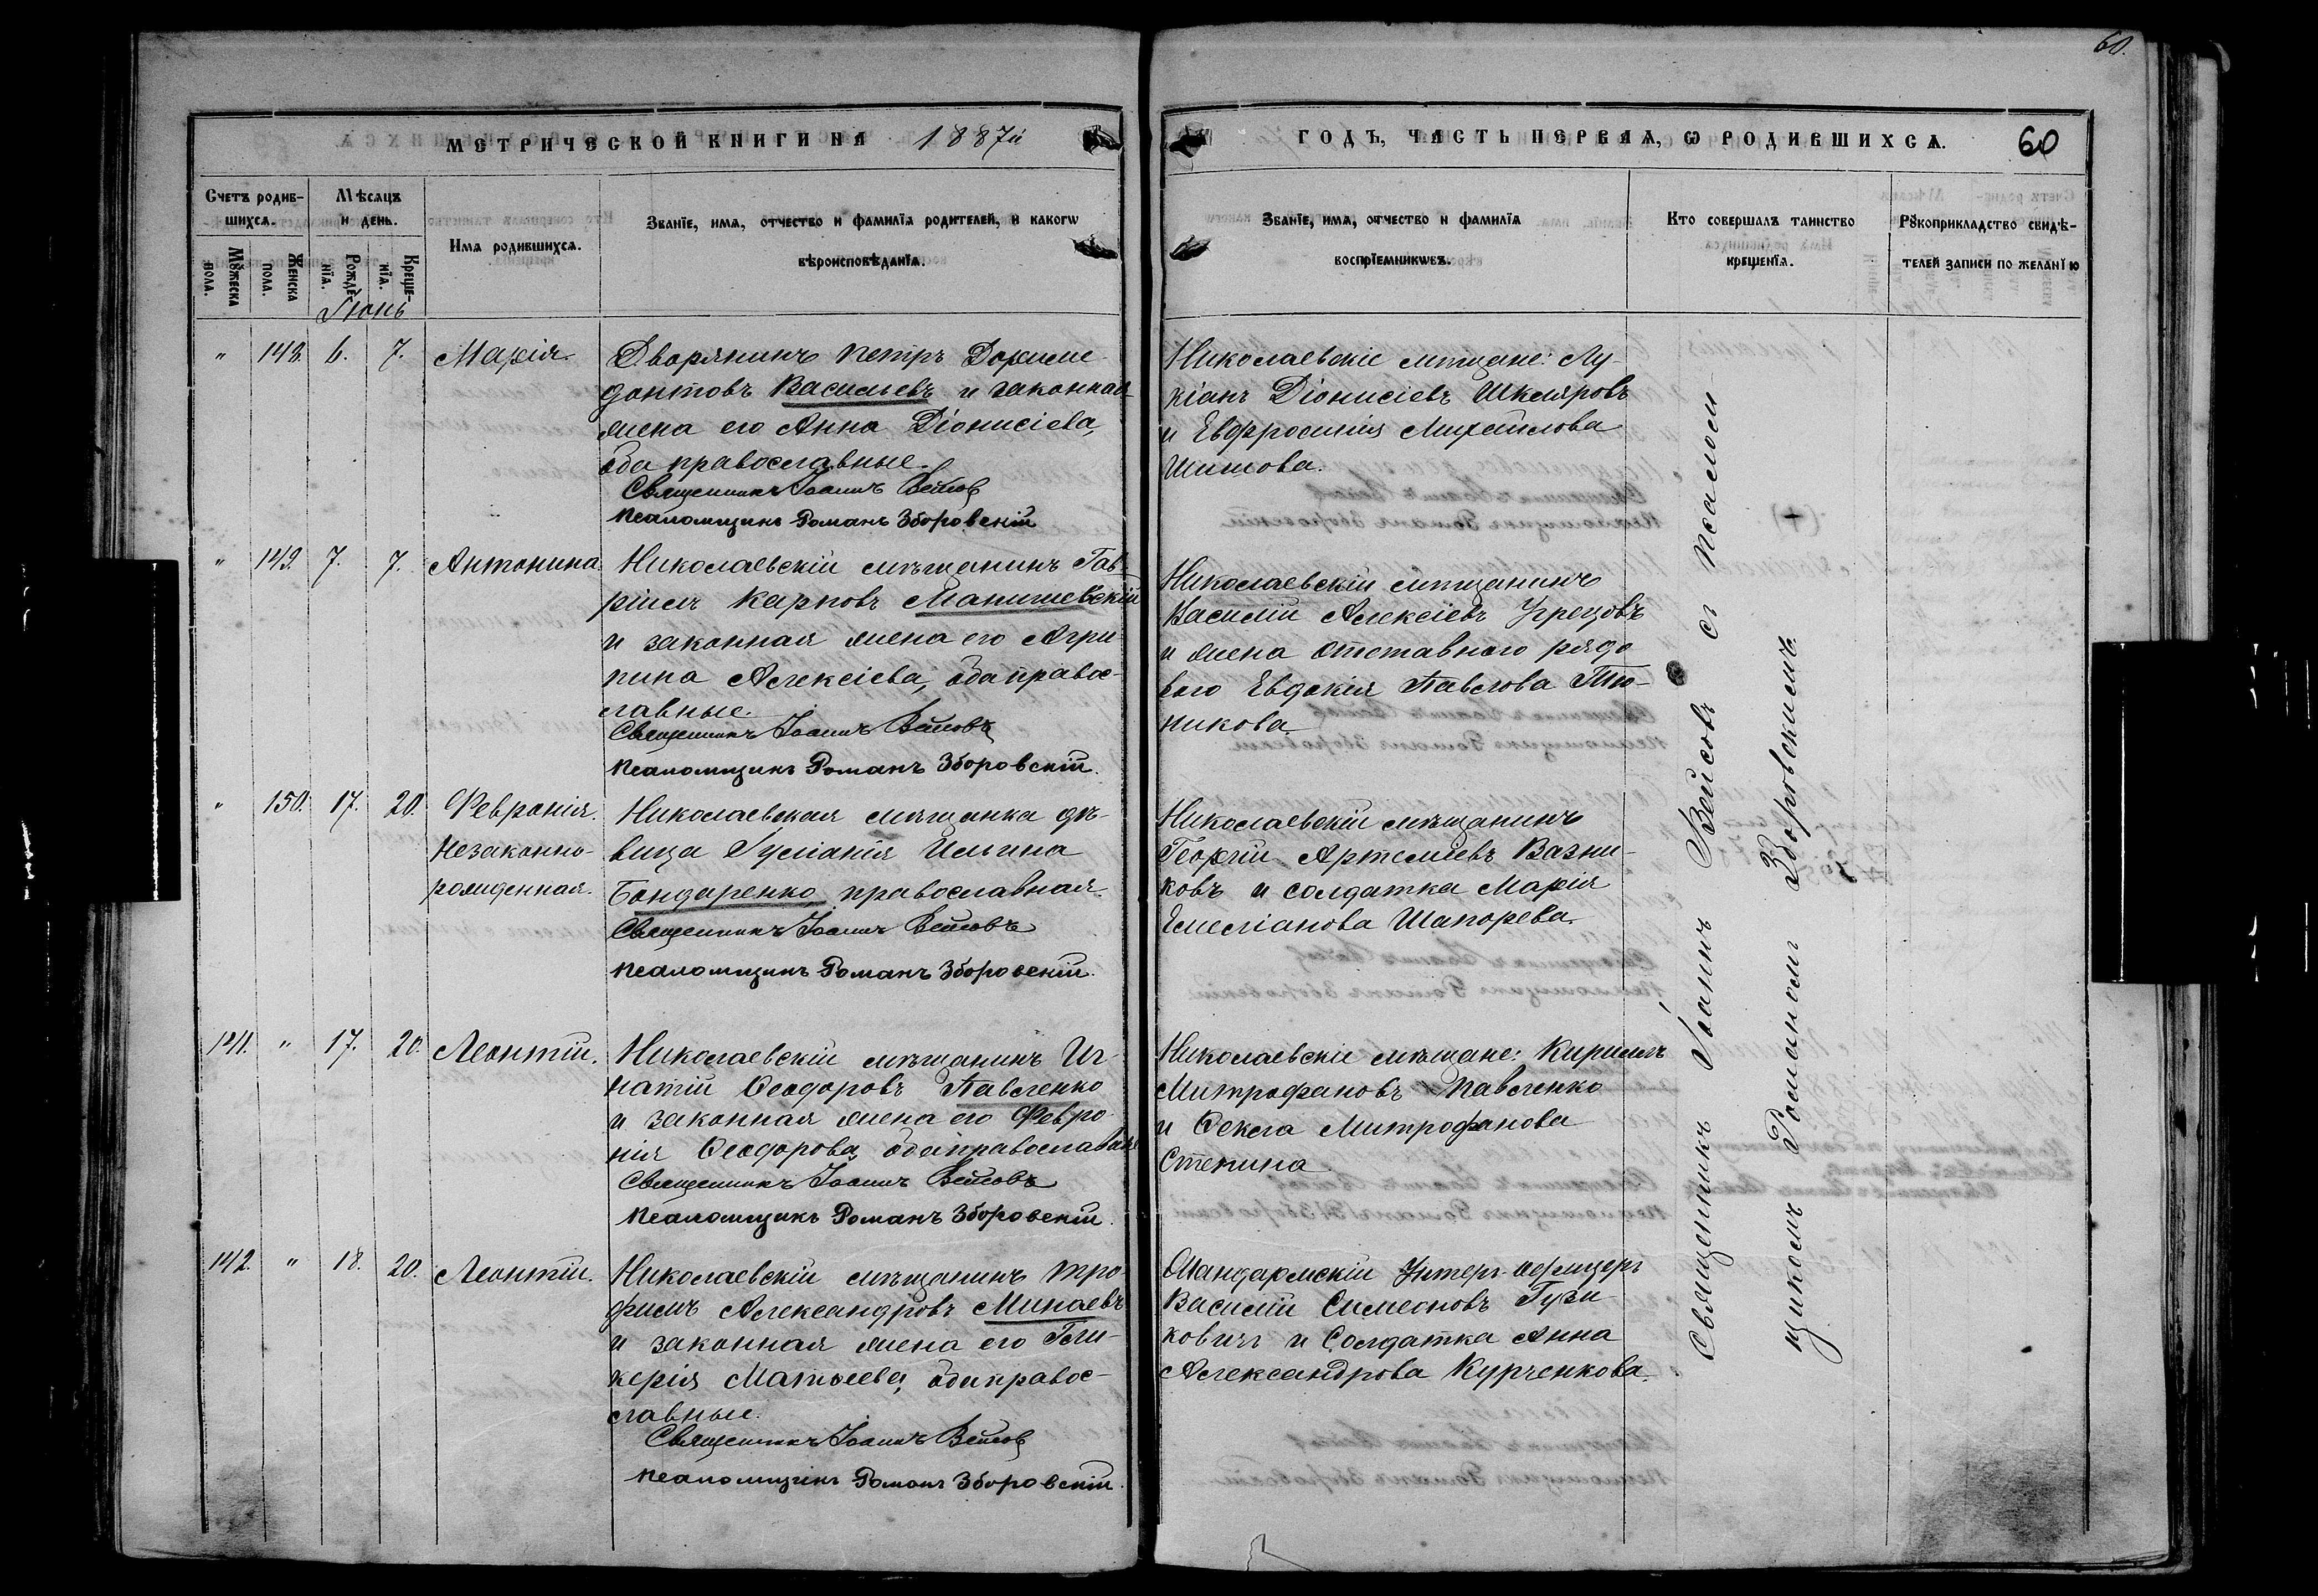 60.
МЕТРИЧЕСКОЙ КНИГИ НА 1887й
ГОДЪ, ЧАСТЬ ПЕРВАЯ, Ѡ РОДИВШИХСѦ.
60
Счетъ родив-
шихсѧ.
Мѣсѧцъ
и день.
Имѧ родившихсѧ.
Званїе, имѧ, отчество и фамилїѧ родителей, и какогѡ
вѣроисповѣданїѧ.
Мꙋжеска
пола.
Женска
пола.
Рожде-
нїѧ.
Креще-
нїѧ.
Званїе, имѧ, отчество и фамилїѧ
воспрїемникѡвъ.
Кто совершалъ таинство
крещенїѧ.
Рꙋкоприкладство свидѣ-
телей записи по желанїю
Іюнь
" 148. 6. 7. Марія.
Дворянинъ Петръ Дориме-
донтовъ Васильевъ и законная
жена его Анна Діонисіева,
оба православные.
Священникъ Іоаннъ Вейсов
Псаломщикъ Романъ Зборовскій
Николаевскіе мѣщане: Лу-
кіанъ Діонисіевъ Шкляровъ
и Евфросинія Михайлова
Шишова.
" 149. 7. 7. Антонина
Николаевскій мѣщанинъ Гав-
ріилъ Карповъ Манишевскій
и законная жена его Агри-
пина Алексіева, оба правос-
лавные.
Священникъ Іоаннъ Вейсовъ
Псаломщикъ Романъ Зборовскій.
Николаевскій мѣщанинъ
Василій Алексіевъ
и жена отставного рядо
вого Евдокія Павлова Тю-
никова
" 150. 17. 20. Февронія.
Незаконно-
рожденная.
Николаевская мѣщанка дѣ-
вица Іуліанія Ильина
Бондаренко, православная.
Священникъ Іоаннъ Вейсовъ
Псаломщикъ Романъ Зборовскій.
Николаевскій мѣщанинъ
Георгій Артеміевъ Вазни-
ковъ и солдатка Марія
Емеліанова Шапорева.
141. " 17. 20. Леонтій.
Николаевскій мѣщанинъ Иг-
натій Ѳеодоровъ Павленко
и законная жена его Февро-
нія Ѳеодорова, оба православные
Священникъ Іоаннъ Вейсовъ
Псаломщикъ Романъ Зборовскій.
Николаевскіе мѣщане: Кириллъ
Митрофановъ Павленко
и Ѳекла Митрофанова
Степина
142. " 18. 20. Леонтій.
Николаевскій мѣщанинъ Тро-
фимъ Александровъ Минаевъ
и законная жена его Гли-
керія Матѳеева, оба правос-
лавные.
Священникъ Іоаннъ Вейсов
Псаломщикъ Романъ Зборовскій.
Жандармскій Унтеръ-офицеръ
Василій Симеоновъ Гузи-
ковичъ и Солдатка Анна
Александрова Курченкова.
Священникъ Іоаннъ Вейсовъ съ псалом
щикомъ Романомъ Зборовскимъ.